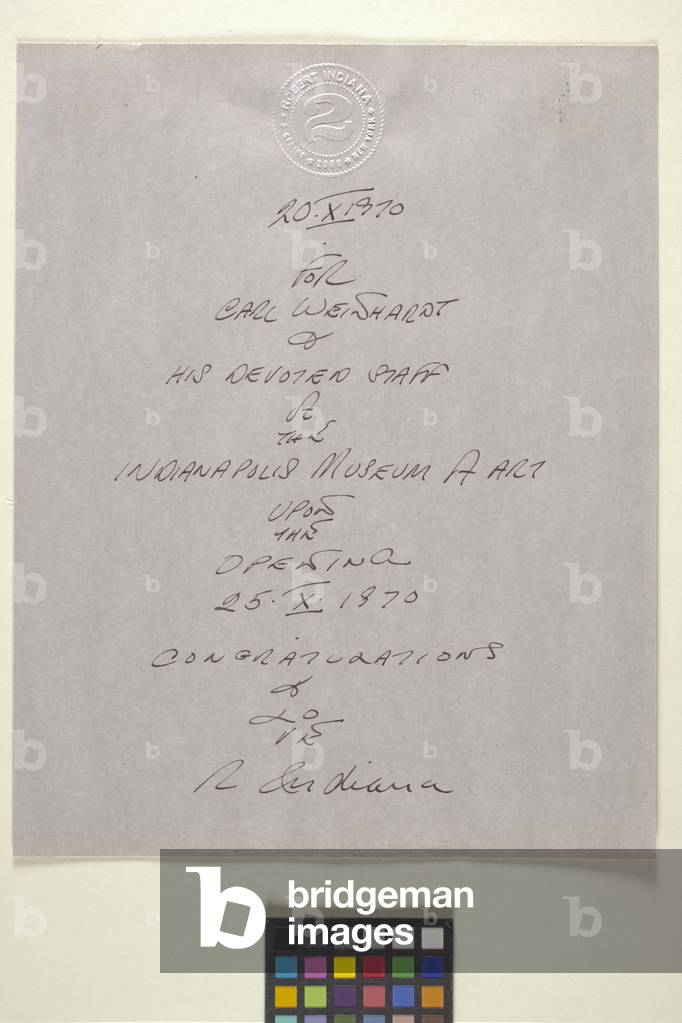 ROBERT INDIANA
NEW YORK
2
20.X.1970
FOR
CARL WEINHARDT
&
HIS DEVOTED STAFF
OF
THE
INDIANAPOLIS MUSEUM OF ART
UPON
THE
OPENING
25.X.1970
CONGRATULATIONS
&
LO
VE
R Indiana
b bridgeman
images